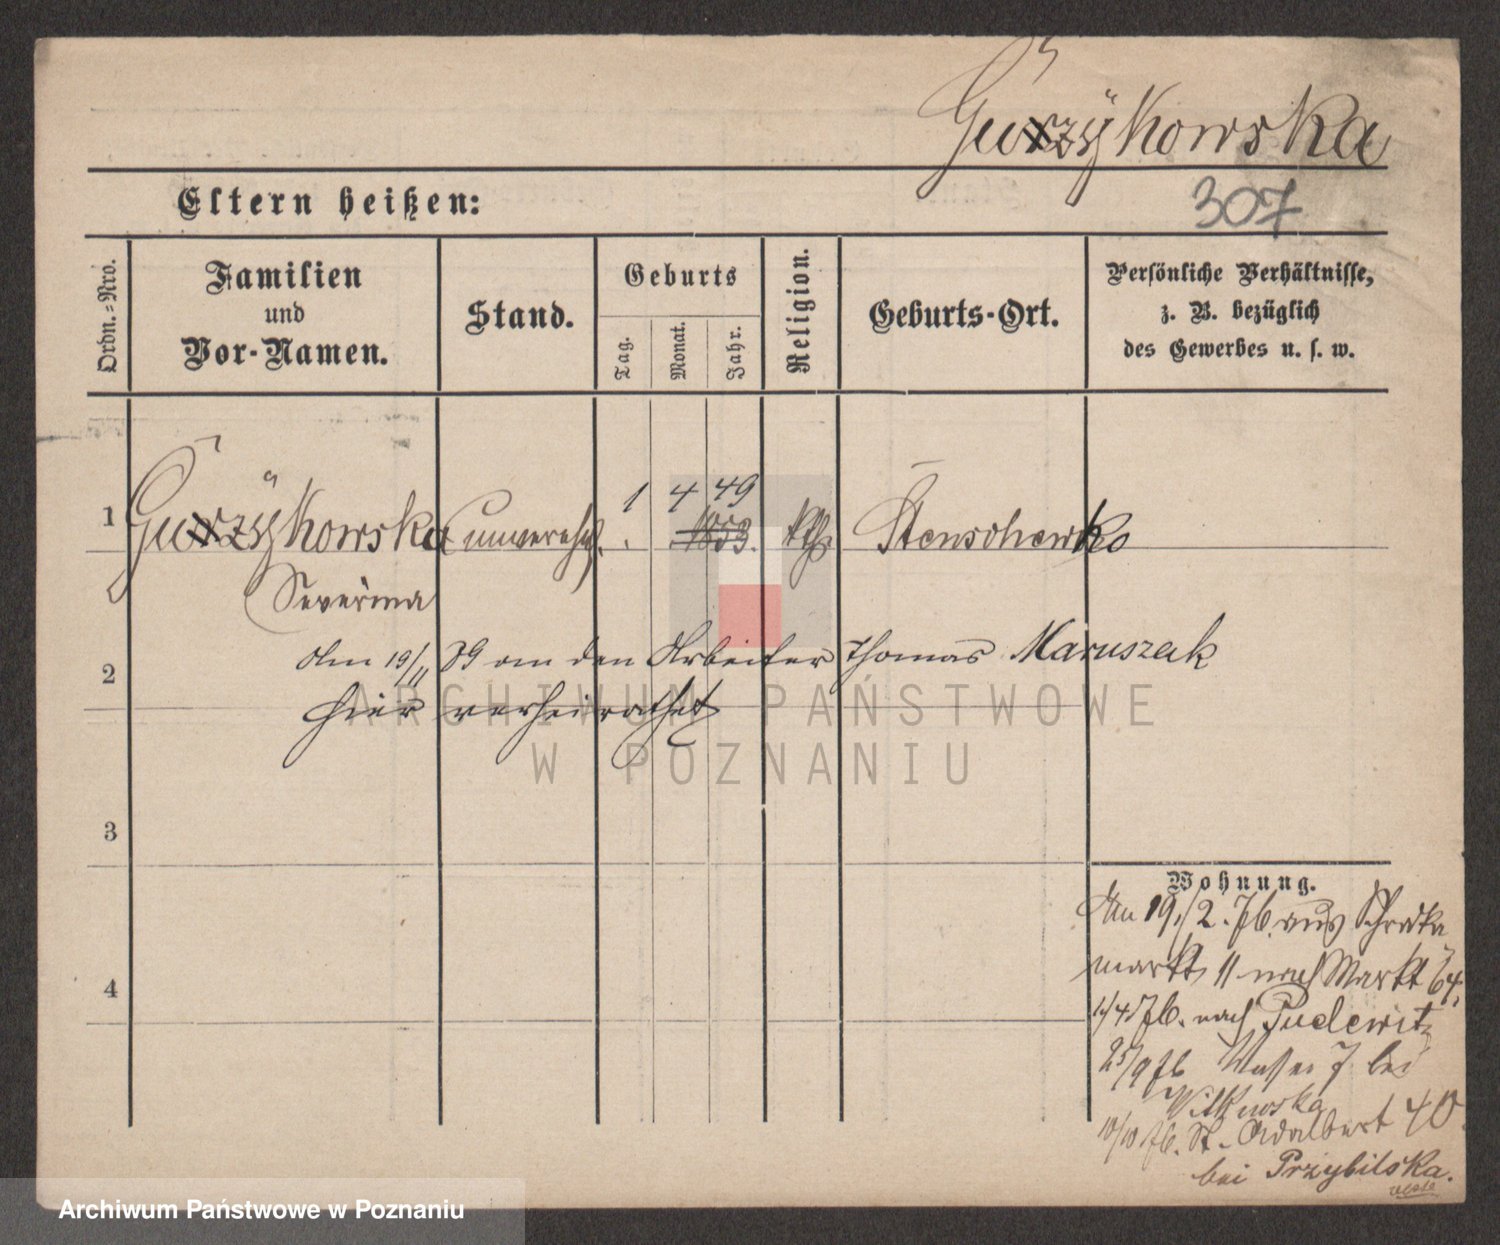 Gurzykowska
307
Eltern heißen:
Ordn.-Nro.
Familien
und
Vor-Namen.
Stand.
Geburts
Tag.
Monat.
Jahr.
Religion.
Geburts-Ort.
Persönliche Verhältnisse,
z. B. bezüglich
des Gewerbes u. s. w.
1 Gurzykowska unvereh. 1 4 49 1853. kth. Stenschewko
Severina
2 Am 19/11 89 an den Arbeiter Thomas Maruszak
hier verheirathet
3
4
Wohnung.
Am 19/2. 76. aus Schrodka
markt 11 nach Markt 64.
1/4 76. nach Pudewitz
25/9 76 Wasser 7 bei
Witkowska
10/10 76. St. Adalbert 40.
bei Przybilska.
ARCHIWUM PAŃSTWOWE
W POZNANIU
Archiwum Państwowe w Poznaniu